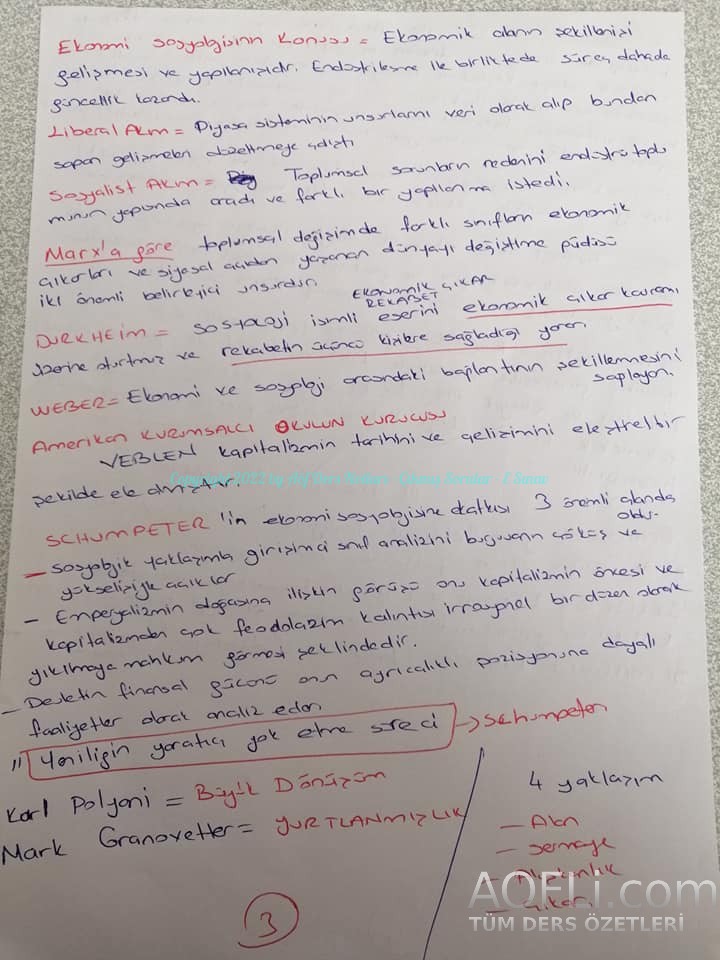 Ekonomi Sosyolojisinin Konusu = Ekonomik alanın şekillenişi
gelişmesi ve yapılanışıdır. Endüstrileşme ile birliktede süreç dahada
güncellik kazandı.
Liberal Akım = Piyasa sisteminin unsurlarını veri olarak alıp bundan
sapan gelişmeleri düzeltmeye çalıştı
Sosyalist Akım = Toplumsal sorunların nedenini endüstri toplu
munun yapısında aradı ve farklı bir yapılanma istedi.
Marx'a göre toplumsal değişimde farklı sınıfların ekonomik
çıkarları ve siyasal açıdan yaşanan dünyayı değiştirme güdüsü
iki önemli belirleyici unsurdur.
EKONOMİK ÇIKAR
REKABET
DURKHEİM = sosyoloji isimli eserini ekonomik çıkar kavramı
üzerine oturtmuş ve rekabetin üçüncü kişilere sağladığı yararı
WEBER= Ekonomi ve sosyoloji arasındaki bağlantının şekillenmesini
saplayan.
Amerikan KURUMSALCI OKULUN KURUCUSU
VEBLEN kapitalizmin tarihini ve gelişimini eleştirel bir
şekilde ele almıştır.
SCHUMPETER 'in ekonomi sosyolojisine katkısı 3 önemli alanda
oldu.
- Sosyolojik yaklaşımla girişimci sınıf analizini burjuvanın çöküş ve
yükselişiyle açıklar
- Emperyalizmin doğasına ilişkin görüşü onu kapitalizmin öncesi ve
kapitalizmden çok feodalizim kalıntısı irrasyonel bir düzen olarak
yıkılmaya mahkum görmesi şeklindedir.
- Devletin finansal gücünü onun ayrıcalıklı pozisyonuna dayalı
faaliyetler olarak analiz eder.
" Yeniliğin yaratıcı yok etme süreci → Schumpeter
Karl Polyani = Büyük Dönüşüm
Mark Granovetter = YURTLANMIŞLIK
4 yaklaşım
- Alan
- Sermaye
- Alışkanlık
- Çıkar
3
AOFLi.com
TÜM DERS ÖZETLERİ